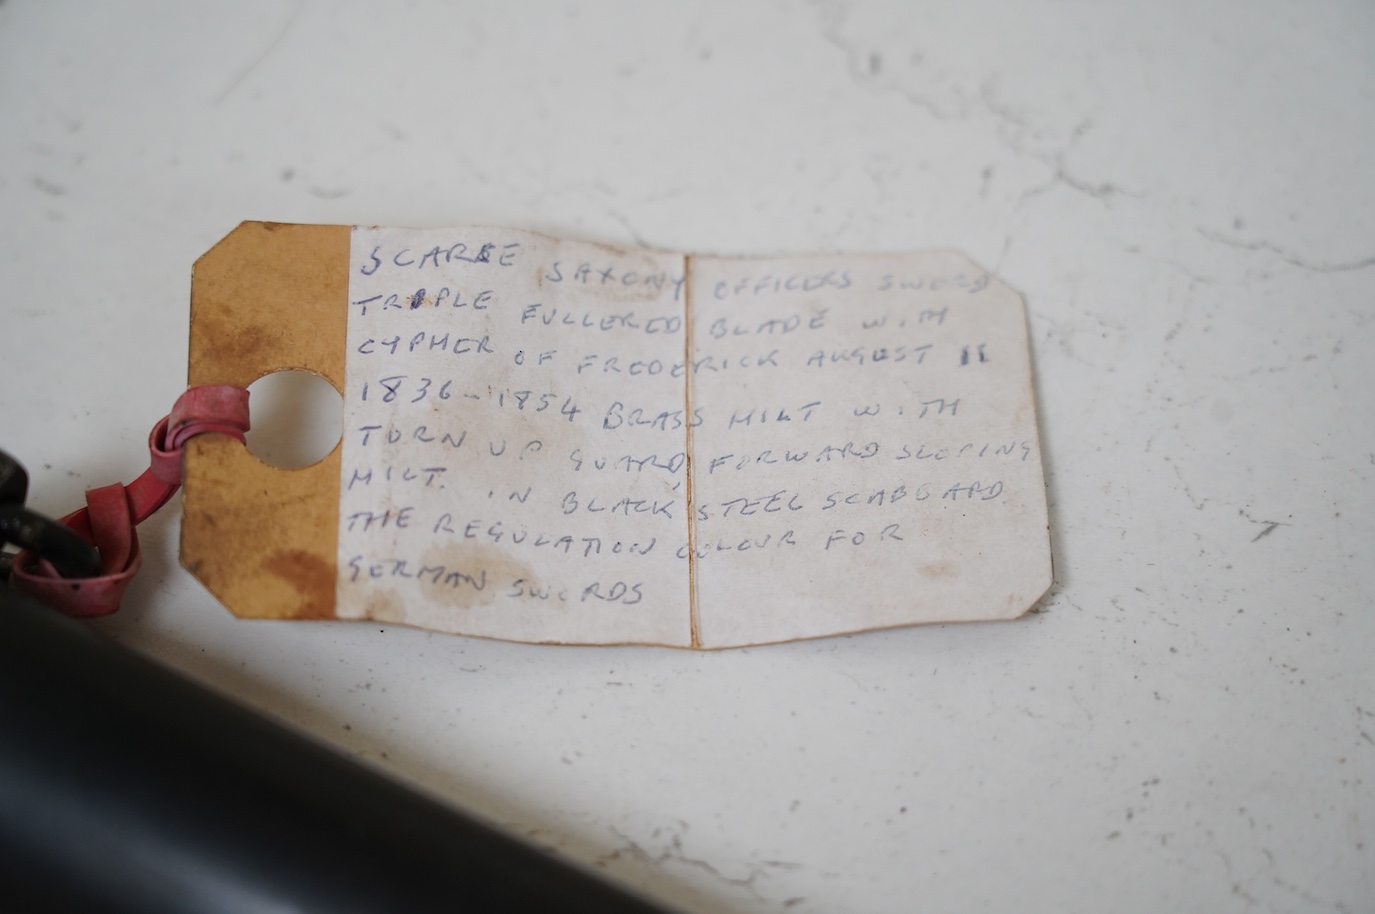 SCARCE SAXONY OFFICERS SWORD
TRIPLE FULLERED BLADE WITH
CYPHER OF FREDERICK AUGUST II
1836-1854 BRASS HILT WITH
TURN UP GUARD, FORWARD SLOPING
HILT. IN BLACK STEEL SCABBARD
THE REGULATION COLOUR FOR
GERMAN SWORDS